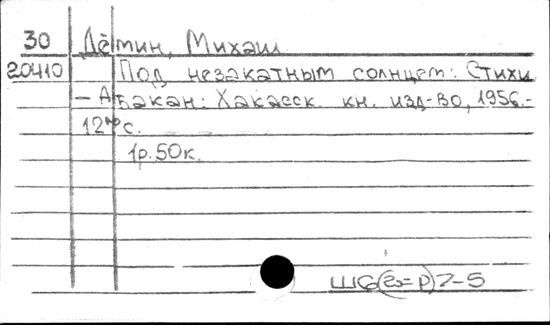 30 Дёмин, Михаил
20410 Под незакатным солнцем: Стихи.
– Абакан: Хакасск. кн. изд-во, 1956.-
127 с.
1р.50к.
Ш6(2=Р)7-5